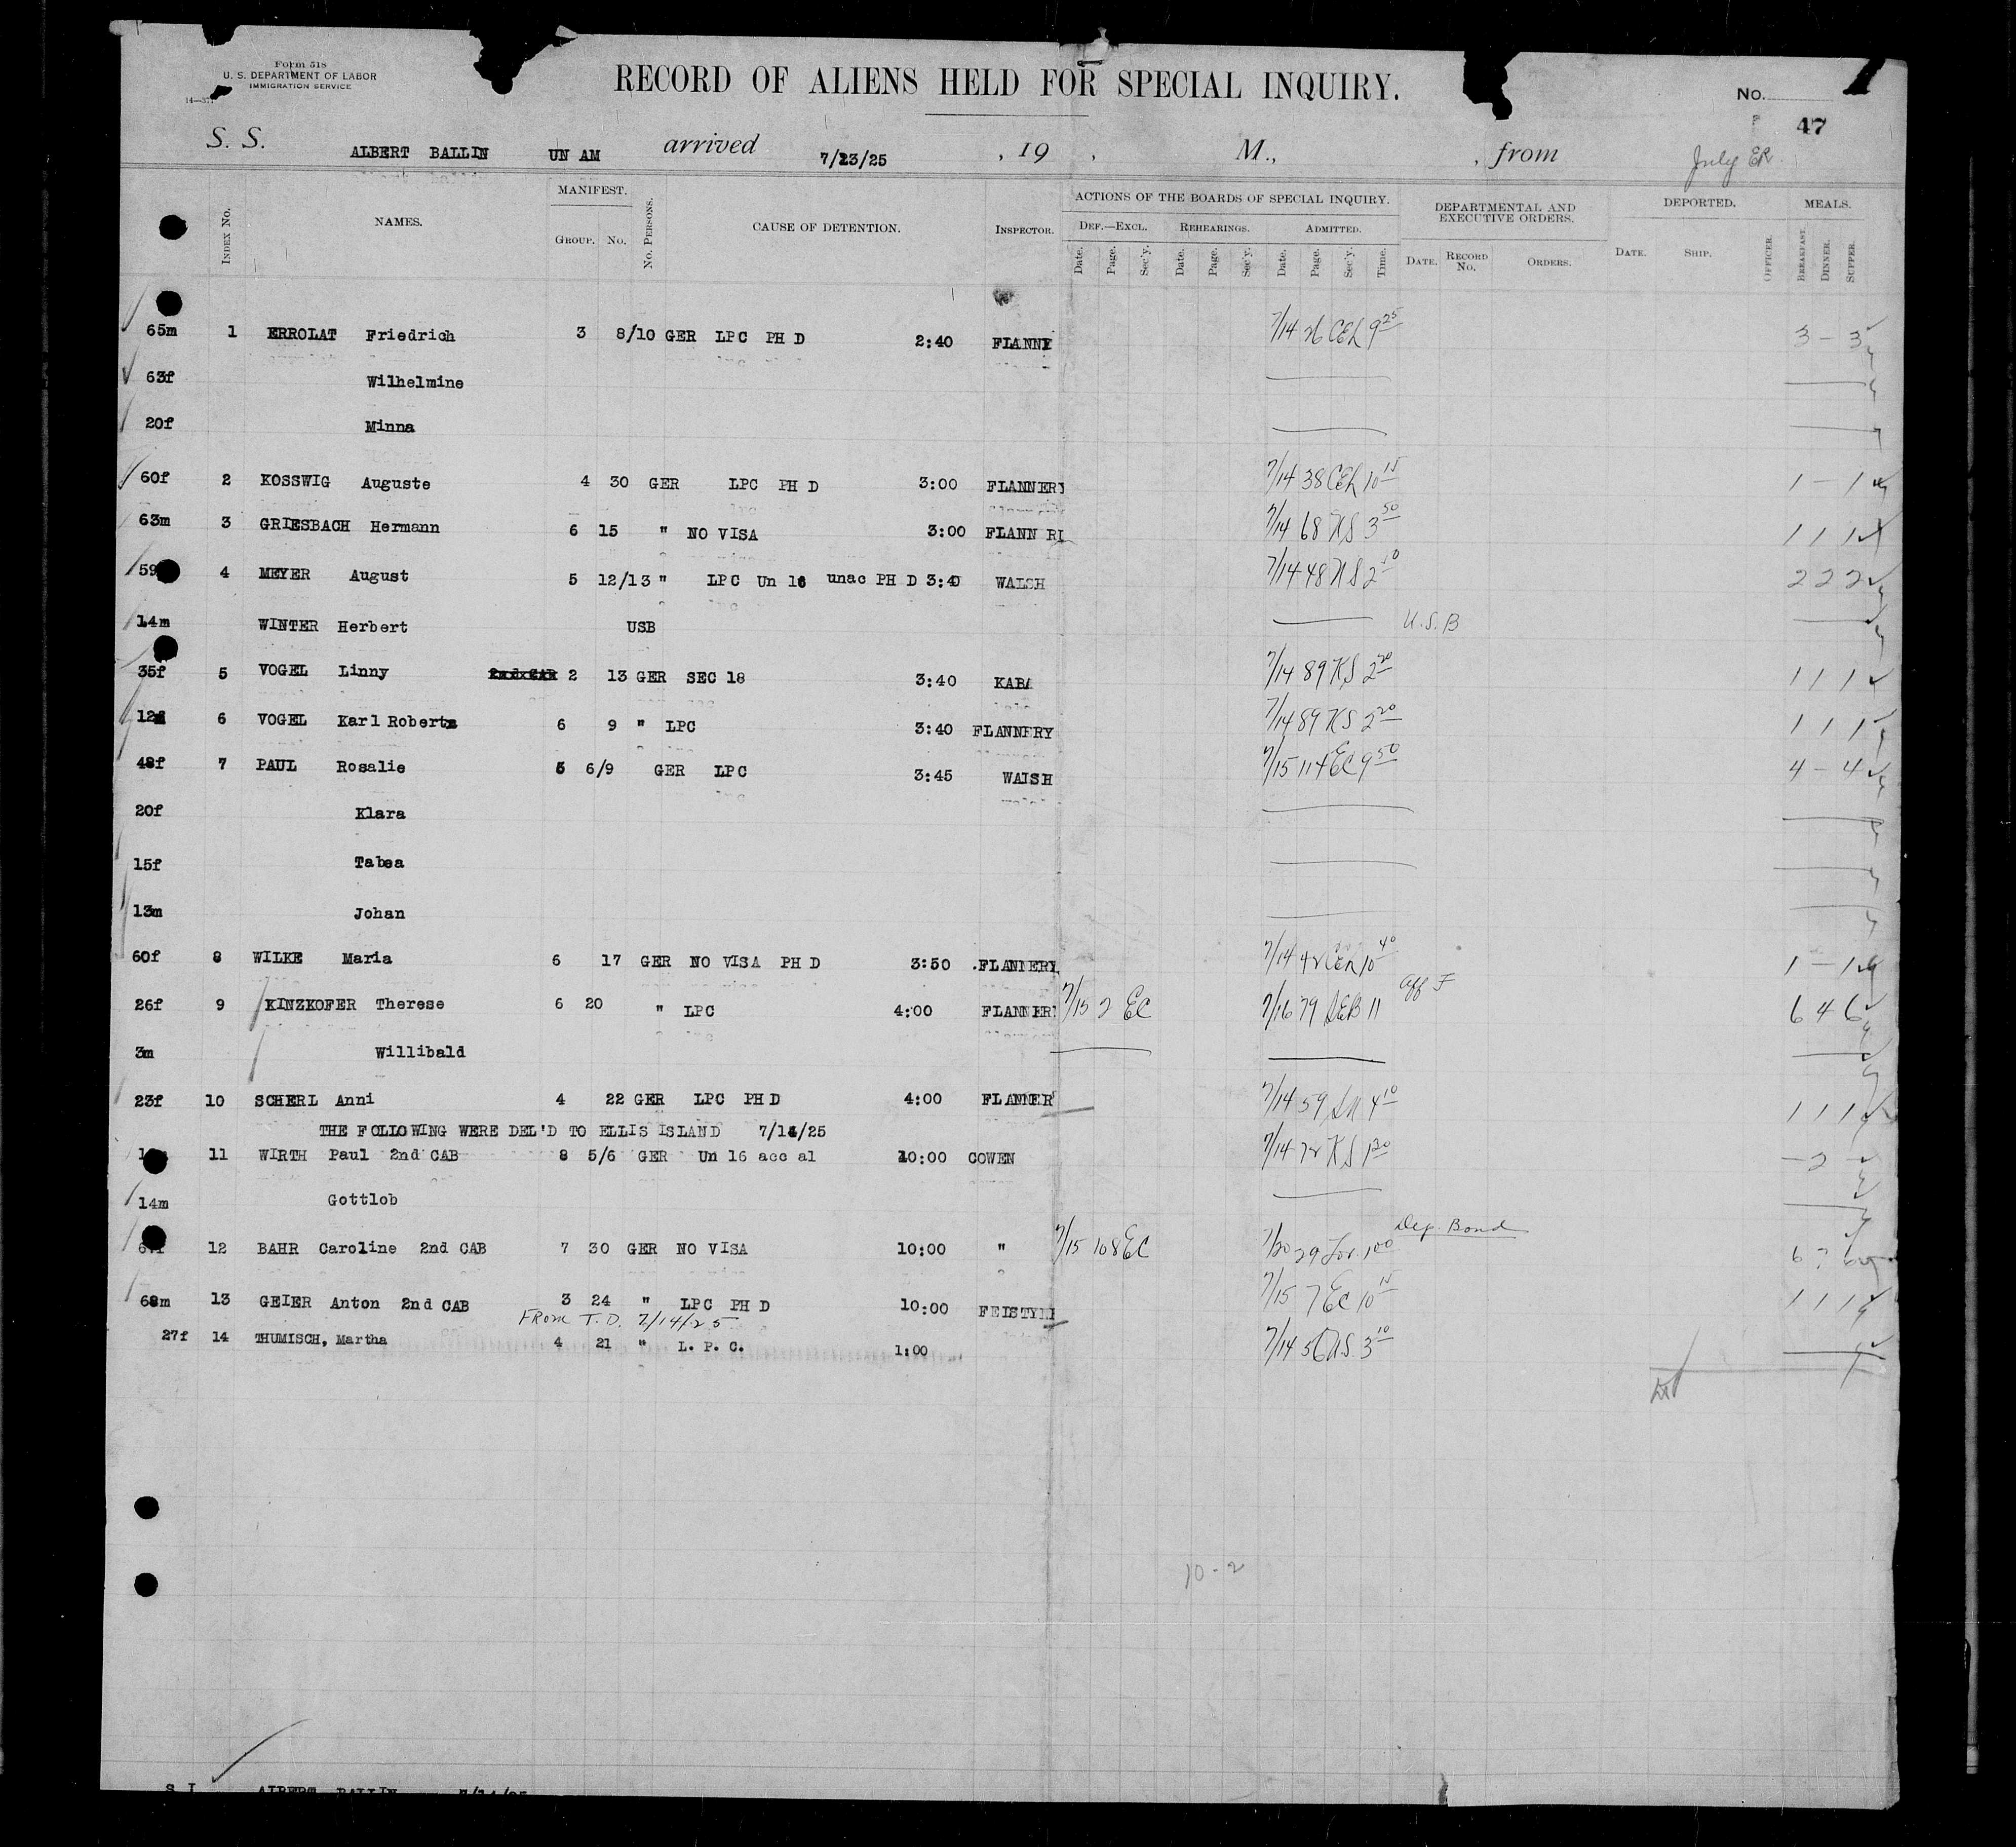 Form 518
U. S. DEPARTMENT OF LABOR
IMMIGRATION SERVICE
RECORD OF ALIENS HELD FOR SPECIAL INQUIRY.
No.
47
S. S. ALBERT BALLIN UN AM arrived 7/13/25 , 19 , M., , from July ER
Index No. NAMES. MANIFEST. GROUP. No. No. PERSONS. CAUSE OF DETENTION. INSPECTOR. ACTIONS OF THE BOARDS OF SPECIAL INQUIRY. DEPARTMENTAL AND EXECUTIVE ORDERS. DEPORTED. MEALS.
DEF.—EXCL. REHEARINGS. ADMITTED.
Date. Page. Sec'y. Date. Page. Sec'y. Date. Page. Sec'y. Time. DATE. RECORD No. ORDERS. DATE. SHIP. OFFICER. BREAKFAST. DINNER. SUPPER.
65m 1 ERROLAT Friedrich 3 8/10 GER LPC PH D 2:40 FLANNE 7/14 26 CEh 9 25 3 – 3
63f Wilhelmine
20f Minna
60f 2 KOSSWIG Auguste 4 30 GER LPC PH D 3:00 FLANNERY 7/14 38 CEh 10 15 1 – 1
63m 3 GRIESBACH Hermann 6 15 " NO VISA 3:00 FLANN RI 7/14 68 KS 3 50 1 1 1
59 4 MEYER August 5 12/13 " LPC Un 16 unac PH D 3:40 WALSH 7/14 48 KS 2 10 2 2 2
14m WINTER Herbert USB U.S.B
35f 5 VOGEL Linny 2nd CAB 2 13 GER SEC 18 3:40 KABA 7/14 89 KS 2 20 1 1 1
12m 6 VOGEL Karl Robert 6 9 " LPC 3:40 FLANNERY 7/14 89 KS 2 20 1 1 1
48f 7 PAUL Rosalie 5 6/9 GER LPC 3:45 WALSH 7/15 114 EC 9 50 4 – 4
20f Klara
15f Tabea
13m Johan
60f 8 WILKE Maria 6 17 GER NO VISA PH D 3:50 FLANNERY 7/14 42 CEh 10 40 1 – 1
26f 9 KINZKOFER Therese 6 20 " LPC 4:00 FLANNERY 7/15 2 EC 7/16 79 SEB 11 Aff F 6 4 6
3m Willibald
23f 10 SCHERL Anni 4 22 GER LPC PH D 4:00 FLANNER 7/14 59 4 10 1 1 1
THE FOLLOWING WERE DEL'D TO ELLIS ISLAND 7/14/25
11 WIRTH Paul 2nd CAB 8 5/6 GER Un 16 acc al 10:00 COWEN 7/14 72 KS 1 30 – 2 –
14m Gottlob
12 BAHR Caroline 2nd CAB 7 30 GER NO VISA 10:00 " 7/15 108 EC 7/20 29 1 00 Dep. Bond 6 7 6
68m 13 GEIER Anton 2nd CAB 3 24 " LPC PH D 10:00 7/15 7 EC 10 15 1 1 1
FROM T.D. 7/14/25
27f 14 THUMISCH, Martha 4 21 " L. P. C. 1:00 7/14 56 3 10
10 - 2
S I ALBERT BALLIN 7/14/25